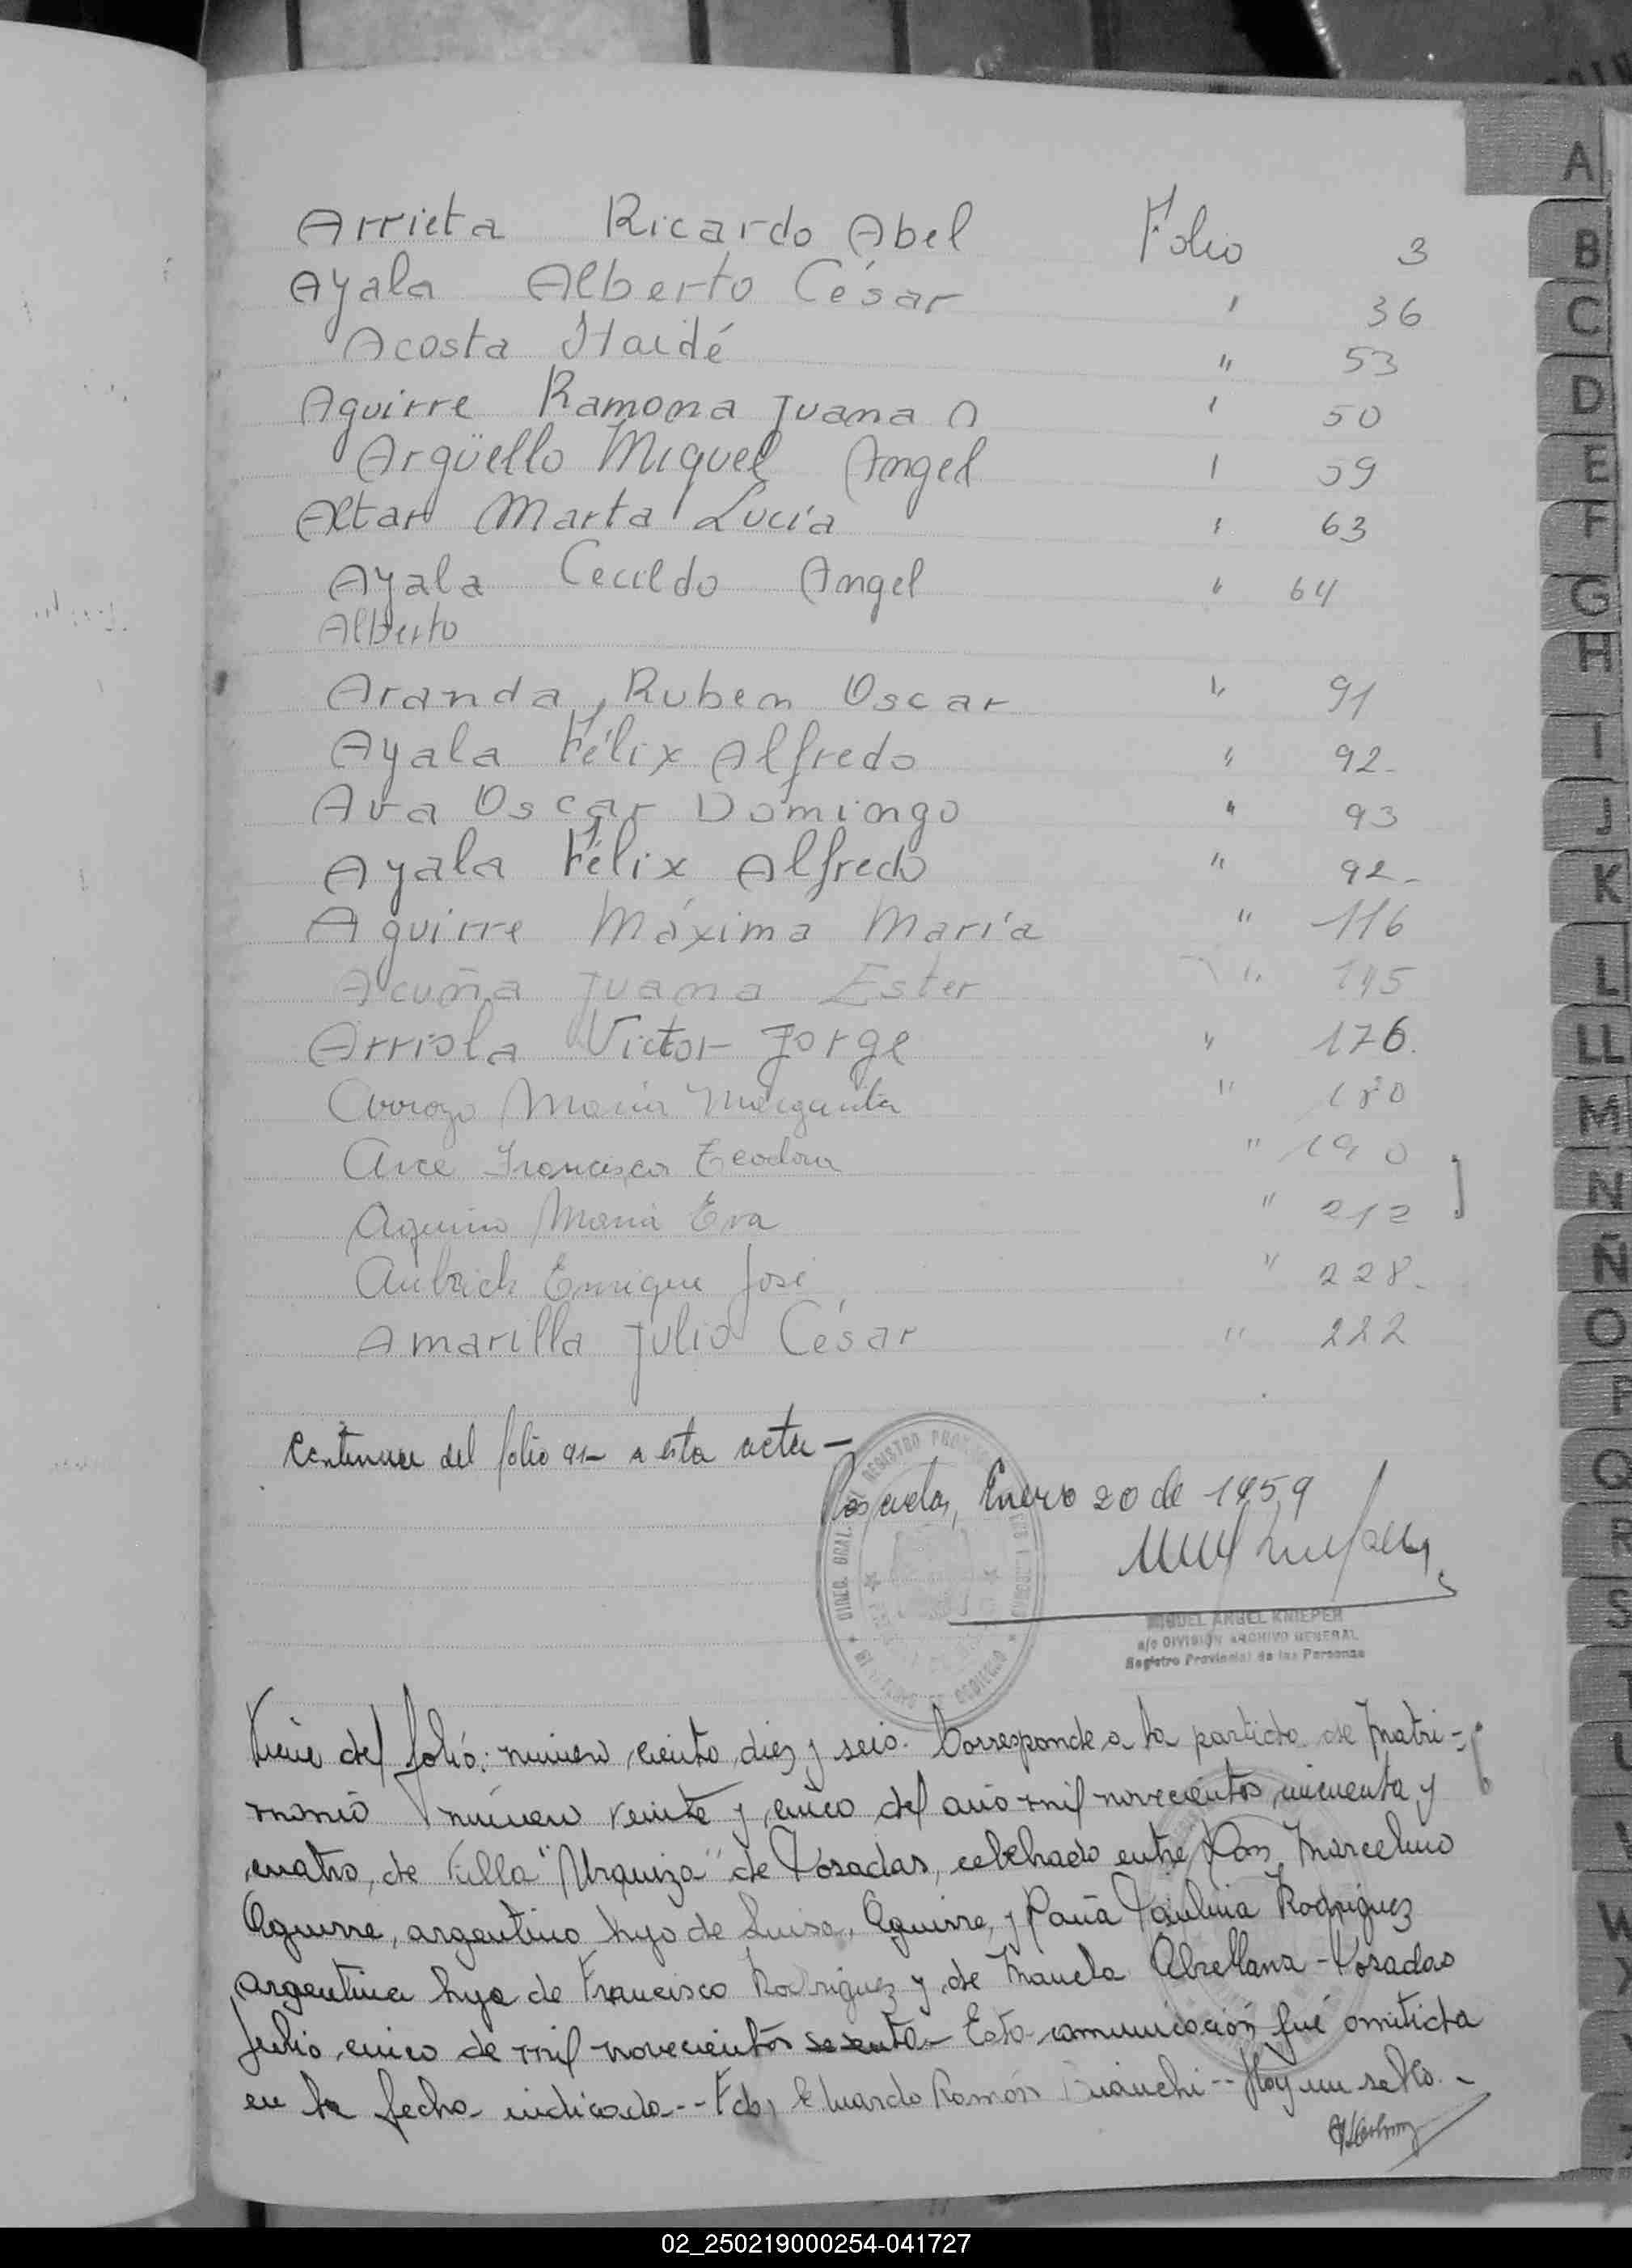 Arrieta Ricardo Abel Folio 3
Ayala Alberto César " 36
Acosta Haidé " 53
Aguirre Ramona Juana A " 50
Argüello Miguel Angel " 59
Altar Marta Lucía " 63
Ayala Cecildo Angel " 64
Alberto
Aranda, Ruben Oscar " 91
Ayala Félix Alfredo " 92-
Ava Oscar Domingo " 93
Ayala Félix Alfredo " 92-
Aguirre Máxima María " 116
Acuña Juana Ester " 145
Arriola Victor Jorge " 176.
Arroyo María Margarita " 180
Arce Francisca Teodora " 190
Aquino María Eva " 212
Aubrich Enrique José " 228-
Amarilla Julio César " 222
Continua del folio 91- a esta acta-
Posadas, Enero 20 de 1959
MIGUEL ANGEL KNIEPER
a/c DIVISIÓN ARCHIVO GENERAL
Registro Provincial de las Personas
DIREC. GRAL. REGISTRO
Viene del folio: número ciento diez y seis. Corresponde a la partida de Matri-
monio número veinte y cinco del año mil novecientos cincuenta y
cuatro, de Villa "Urquiza" de Posadas, celebrado entre Don Marcelino
Aguirre, argentino hijo de Luisa Aguirre, y Doña Paulina Rodriguez
argentina hija de Francisco Rodriguez y de Manuela Abrellana - Posadas
Julio cinco de mil novecientos sesenta- Esta comunicación fué omitida
en la fecha indicada-- Fdo, Eduardo Ramón Bianchi -- Hay un sello.-
A
B
C
D
E
F
G
H
I
J
K
L
LL
M
N
Ñ
O
P
Q
R
S
T
U
V
W
X
02_250219000254-041727